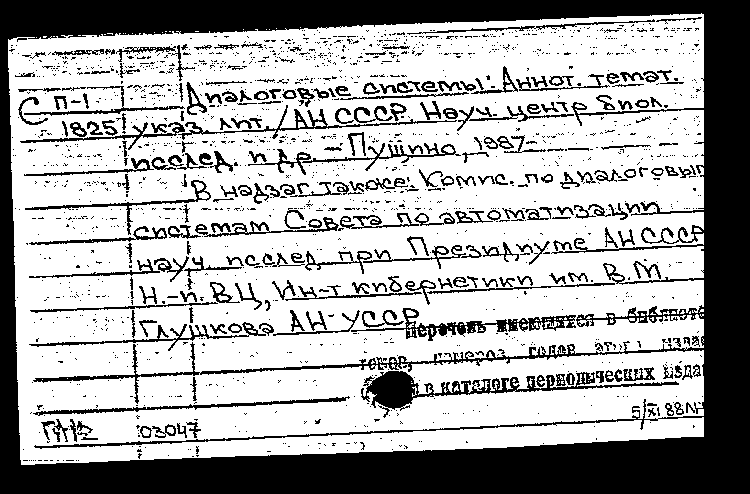 С П-1 Диалоговые системы: Аннот. темат.
1825 указ. лит. / АН СССР. Науч. центр биол.
исслед. и др. – Пущино, 1987-
В надзаг. также: Комис. по диалоговым
системам Совета по автоматизации
науч. исслед. при Президиуме АН СССР
Н.-и. ВЦ, Ин-т кибернетики им. В.М.
Глушкова АН УССР
Перечень имеющихся в библиоте
томов, номеров, годов этого изда
в каталоге периодических изда
5/XI 88
03047